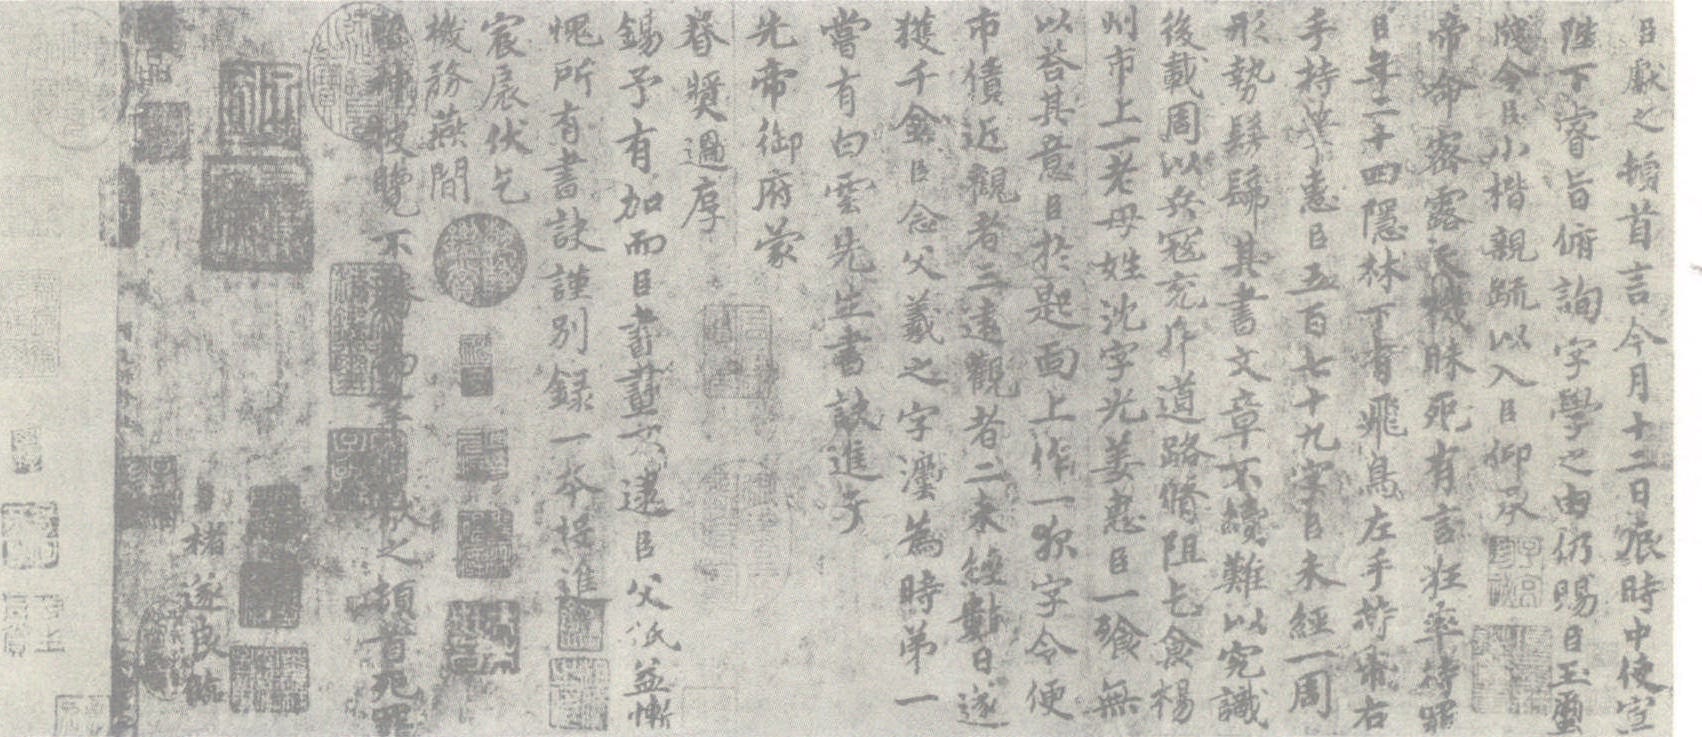 臣獻之頓首言今月十二日辰時中使宣
陛下睿旨俯詢字學之由仍賜臣玉璽
牋今臣小楷親疏以入臣仰承
帝命密露天機昧死有言狂率待罪
臣年二十四隱林下有飛鳥左手持帋右
手持筆惠臣五百七十九字臣未經一周
形勢髣髴其書文章不續難以究識
後載周以兵寇充斥道路脩阻乞食揚
州市上一老母姓沈字光姜惠臣一飡無
以荅其意臣於匙面上作一夜字令便
市債近觀者三遠觀者二未經數日遂
獲千金臣念父羲之字法為時第一
嘗有白雲先生書訣進于
先帝御府蒙
眷獎過厚
錫予有加而臣書畫不逮臣父祗益慚
愧所有書訣謹別錄一本投進
宸扆伏乞
機務燕閒
披覽不勝之頓首死罪
褚遂良臨